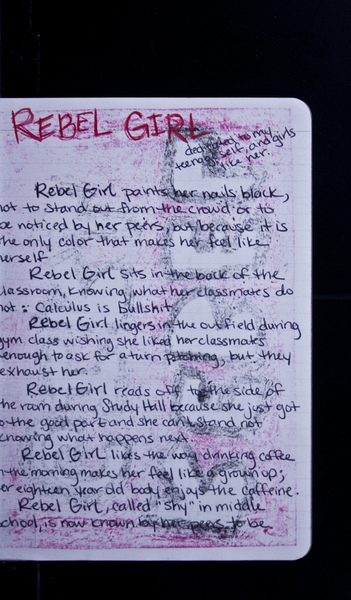 REBEL GIRL
dedicated to my
teenage self, and girls
like her.
Rebel Girl paints her nails black,
not to stand out from the crowd or to
be noticed by her peers, but because it is
the only color that makes her feel like
herself
Rebel Girl sits in the back of the
classroom, knowing what her classmates do
not: Calculus is bullshit
Rebel Girl lingers in the outfield during
gym class wishing she liked her classmates
enough to ask for a turn pitching, but they
exhaust her.
Rebel Girl reads off to the side of
the room during Study Hall because she just got
to the good part and she can't stand not
knowing what happens next.
Rebel Girl likes the way drinking coffee
in the morning makes her feel like a grown up;
her eighteen year old body enjoys the caffeine.
Rebel Girl, called "shy" in middle
school, is now known by her peers to be